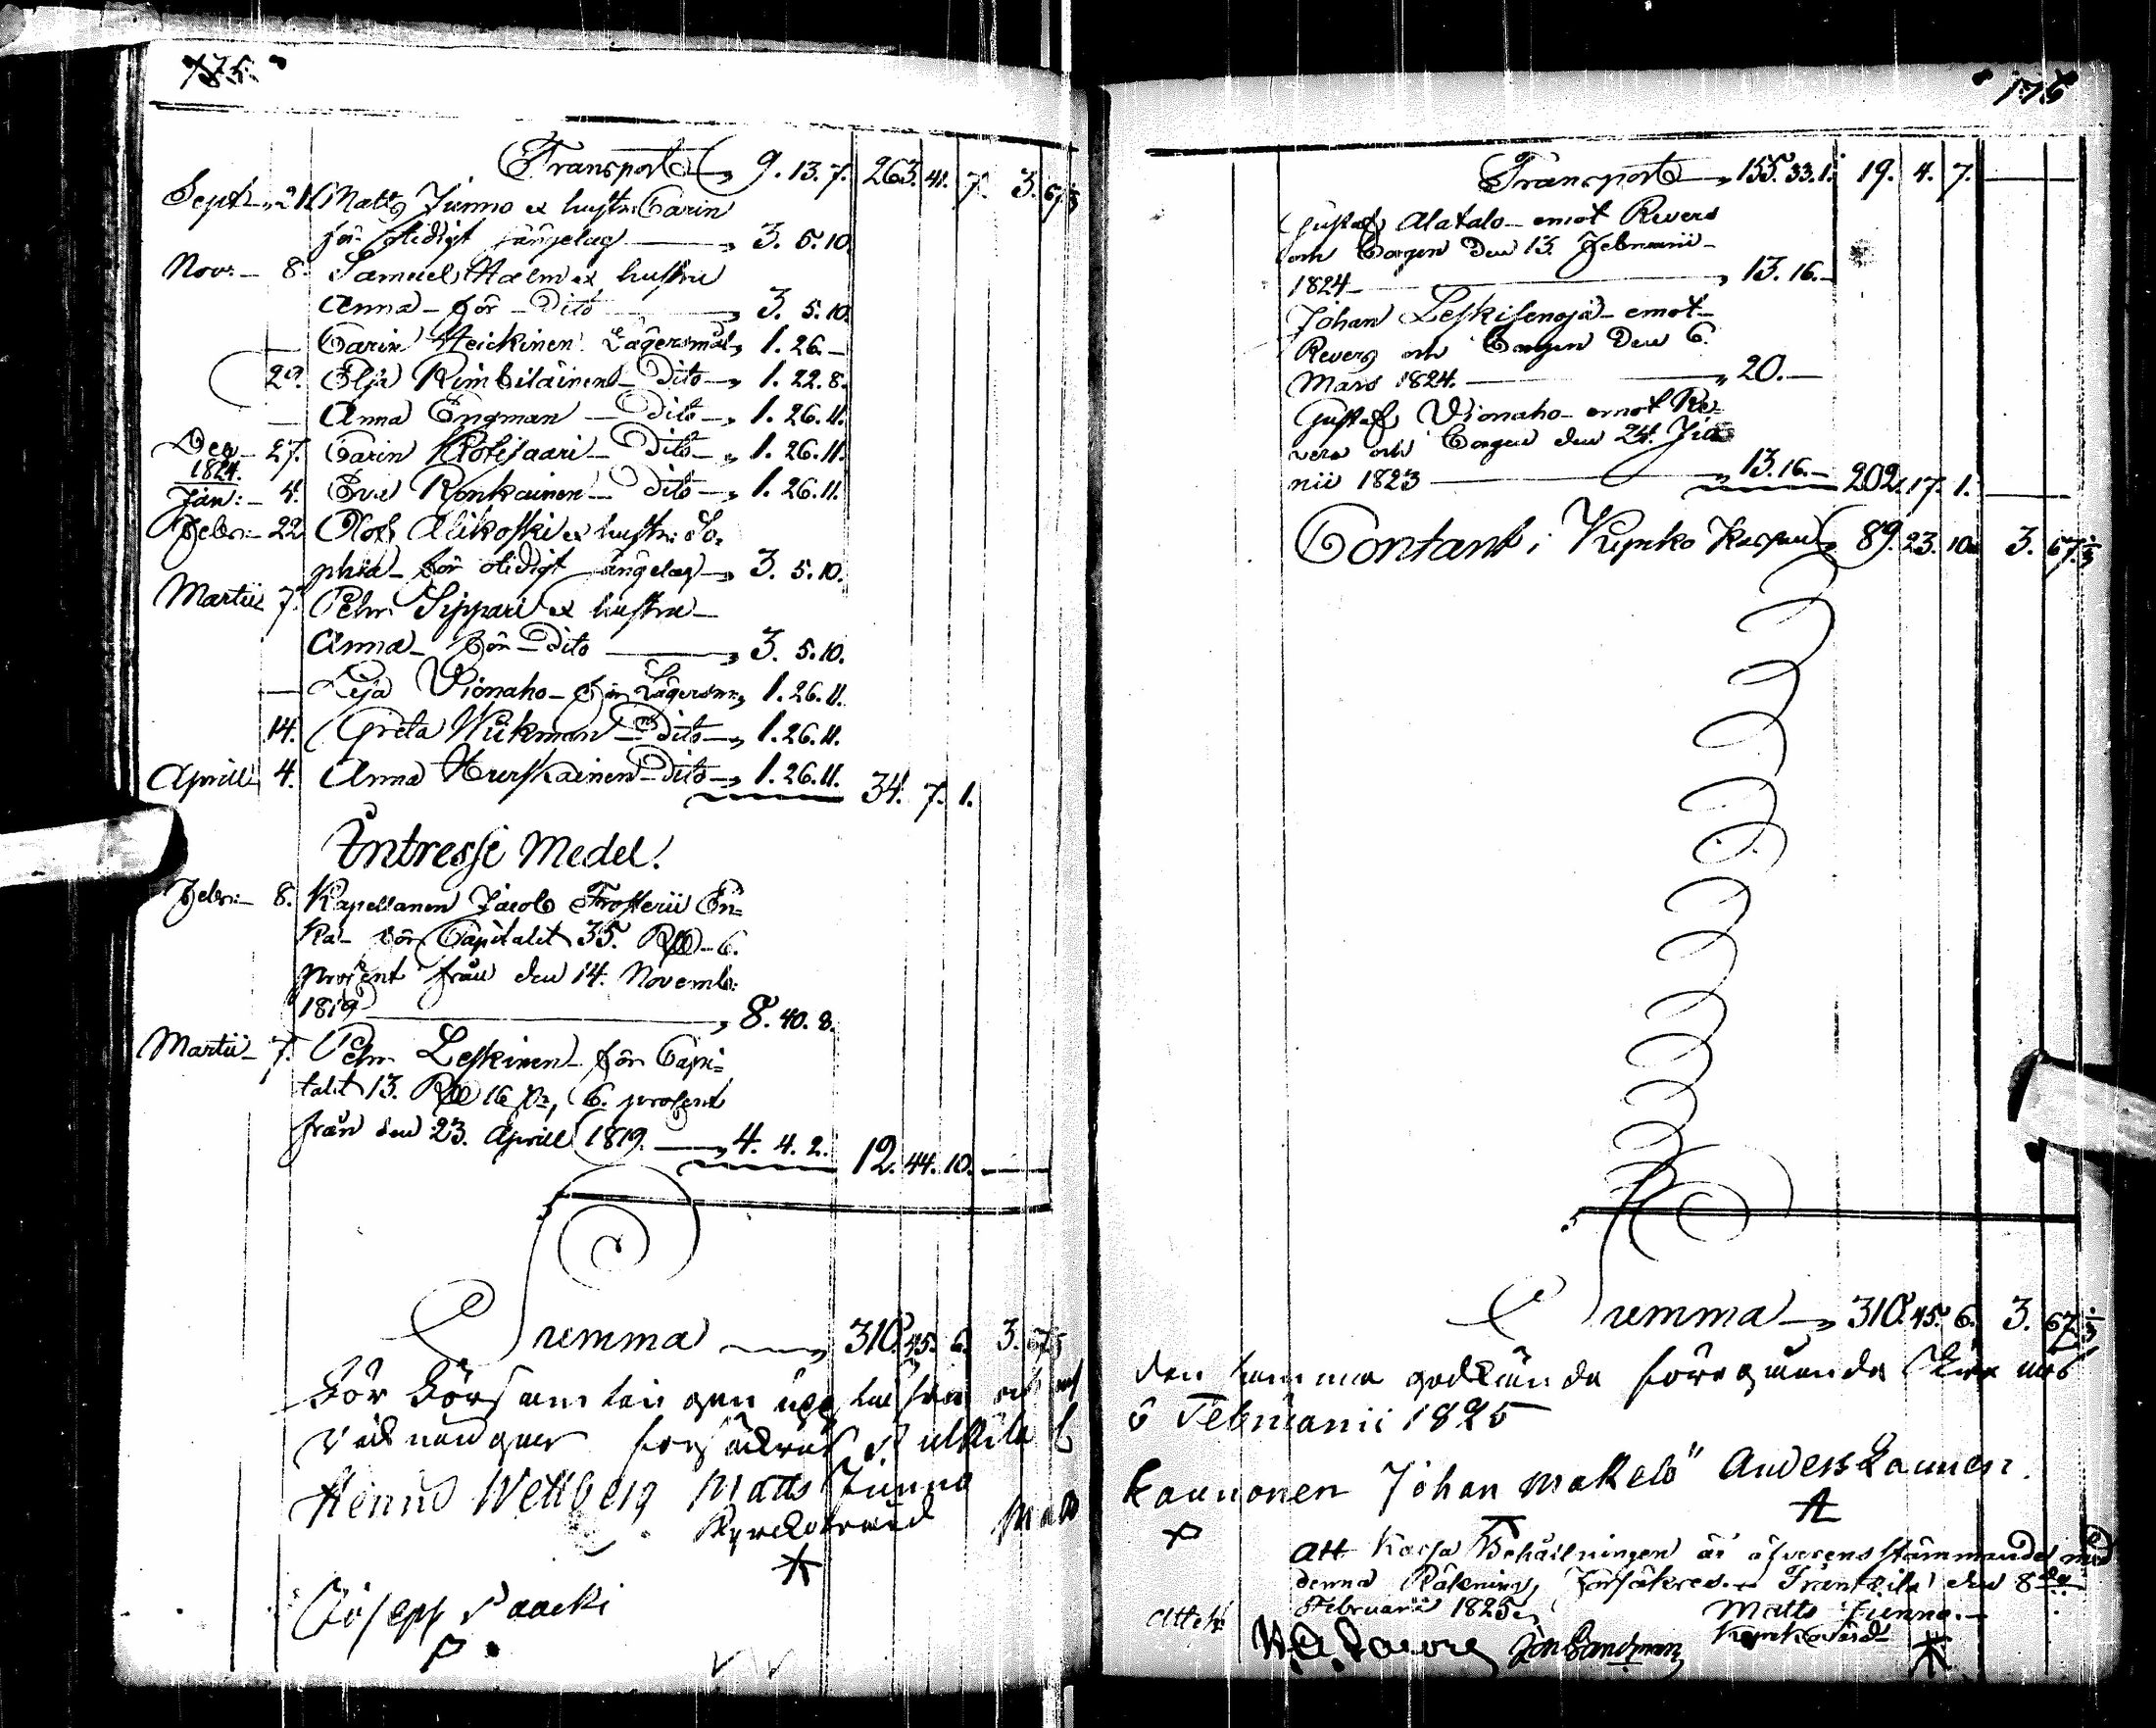 175.
Transport 9. 13. 7. 263. 41. 7. 3. 67⅓
Sept. 21. Matts Junno et hustru Carin
för otidigt sängelag 3. 5. 10.
Nov. 8. Samuel Halm et hustru
Anna för Dito 3. 5. 10.
Carin Heickinen Lägersmål 1. 26.
29. Dito 1. 22. 8.
Anna Engman Dito 1. 26. 11.
Dec. 27. Carin Kotisaari Dito 1. 26. 11.
1824.
Jan: 4. Eva Ronkainen Dito 1. 26. 11.
Febr: 22. Olof Alikoski et hustru So-
phia för otidigt sängelag 3. 5. 10.
Martii 7. Pehr Sippari et hustru
Anna för Dito 3. 5. 10.
Vionaho för Lägersm: 1. 26. 11.
14. Greta Wickman Dito 1. 26. 11.
Aprill 4. Anna Hurskainen Dito 1. 26. 11. 34. 7. 1.
Intresse Medel.
Febr: 8. Kapellanen Jacob Frosterii En=
ka för Capitalet 35. 6.
prosent från den 14. Novemb:
1819 8. 40. 8.
Martii 7. Pehr Leskinen för Capi=
talet 13. 16 6. prosent
från den 23. Aprill 1819. 4. 4. 2. 12. 44. 10.
Summa 310. 45. 6. 3. 67⅓
För Församlingen
Wettberg Matts Junno
Kyrckovärd Matts
Joseph Paacki
175
Transport 155. 33. 1. 19. 4. 7.
Gustaf Alatalo emot Revers
och Borgen den 13. Februarii
1824 13. 16.
Johan Leskisenoja emot
Revers och Borgen den 6.
Mars 1824. 20.
Gustaf Vionaho emot Re=
vers och Borgen den 24. Ju=
nii 1823 13. 16. 202. 17. 1.
Contant i Kyrko Kassan 89. 23. 10. 3. 67⅓
Summa 310. 45. 6. 3. 67⅓
godkände föregående
Februarii 1825
Kaunonen Johan Makelö Anders Launen.
Att Kassa Behållningen är öfverensstämmande med
denna Räkning, försäkras. Frantsila den 8de
Februarii 1825.
Matts Junno.
Kyrkovärd